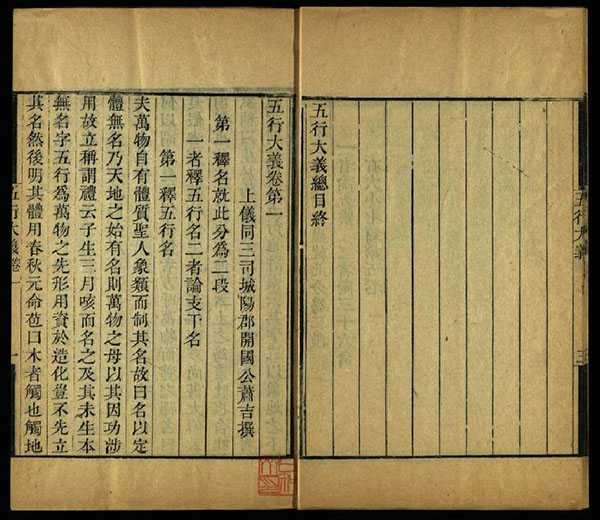 五行大義總目終
五行大義
三
五行大義卷第一
上儀同三司城陽郡開國公蕭吉撰
第一釋名就此分爲二段
一者釋五行名二者論支干名
第一釋五行名
夫萬物自有體質聖人象類而制其名故曰名以定
體無名乃天地之始有名則萬物之母以其因功涉
用故立稱謂禮云子生三月咳而名之及其未生本
無名字五行爲萬物之先形用資於造化豈不先立
其名然後明其體用春秋元命苞曰木者觸也觸地
五行大義卷一
一